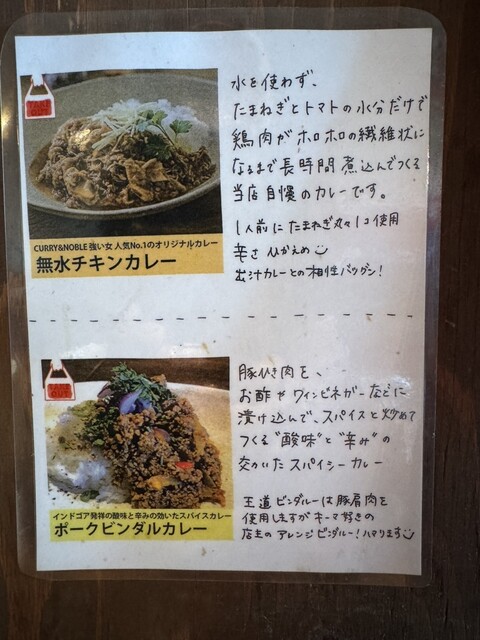 TAKE OUT
水を使わず、
たまねぎとトマトの水分だけで
鶏肉がホロホロの繊維状に
なるまで長時間煮込んでつくる
当店自慢のカレーです。
1人前にたまねぎ丸々1コ使用
辛さひかえめ
出汁カレーとの相性バツグン!
CURRY&NOBLE 強い女 人気No.1のオリジナルカレー
無水チキンカレー
TAKE OUT
豚ひき肉を、
お酢やワインビネガーなどに
漬け込んで、スパイスと炒めて
つくる"酸味"と"辛み"の
交わいたスパイシーカレー
王道ビンダルーは豚肩肉を
使用しますがキーマ好きの
店主のアレンジビンダルー!ハマります
インドゴア発祥の酸味と辛みの効いたスパイスカレー
ポークビンダルカレー